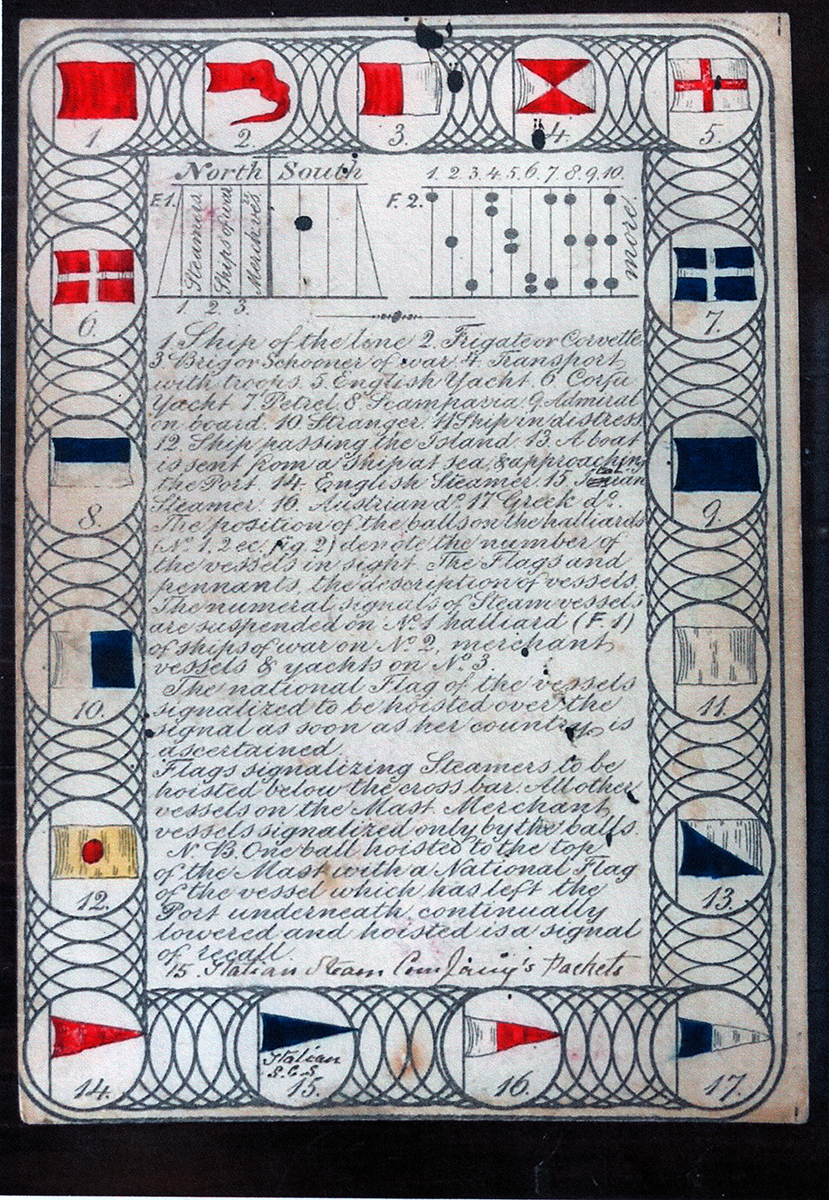 1. 2. 3. 4. 5.
North South 1. 2. 3. 4. 5. 6. 7. 8. 9. 10.
F. 1. Steamers Ships of war Merch. ves. F. 2. more
1. 2. 3.
6. 7.
8. 9.
10. 11.
12. 13.
1. Ship of the line 2. Frigate or Corvette
3 Brig or Schooner of war 4. Transport
with troops 5. English Yacht 6. Corfu
Yacht 7. Petrel 8. Scamparia 9. Admiral
on board. 10. Stranger. 11 Ship in distress.
12. Ship passing the Island. 13. A boat
is sent from a Ship at sea, & approaching
the Port. 14. English Steamer. 15.
Steamer. 16. Austrian do. 17 Greek do.
The position of the balls on the halliards
(No. 1, 2 ec. fig. 2) denote the number of
the vessels in sight. The Flags and
pennants, the description of vessels.
The numeral signals of Steam vessels
are suspended on No. 1 halliard (F. 1)
of ships of war on No. 2, merchant
vessels & yachts on No. 3.
The national Flag of the vessels
signalized to be hoisted over the
signal as soon as her country is
ascertained.
Flags signalizing Steamers to be
hoisted below the cross bar. All other
vessels on the Mast. Merchant
vessels signalized only by the balls.
N. B. One ball hoisted to the top
of the Mast with a National Flag
of the vessel which has left the
Port underneath, continually
lowered and hoisted is a signal
of recall.
15. Italian Steam Packets
14. Italian S. C. S. 15. 16. 17.